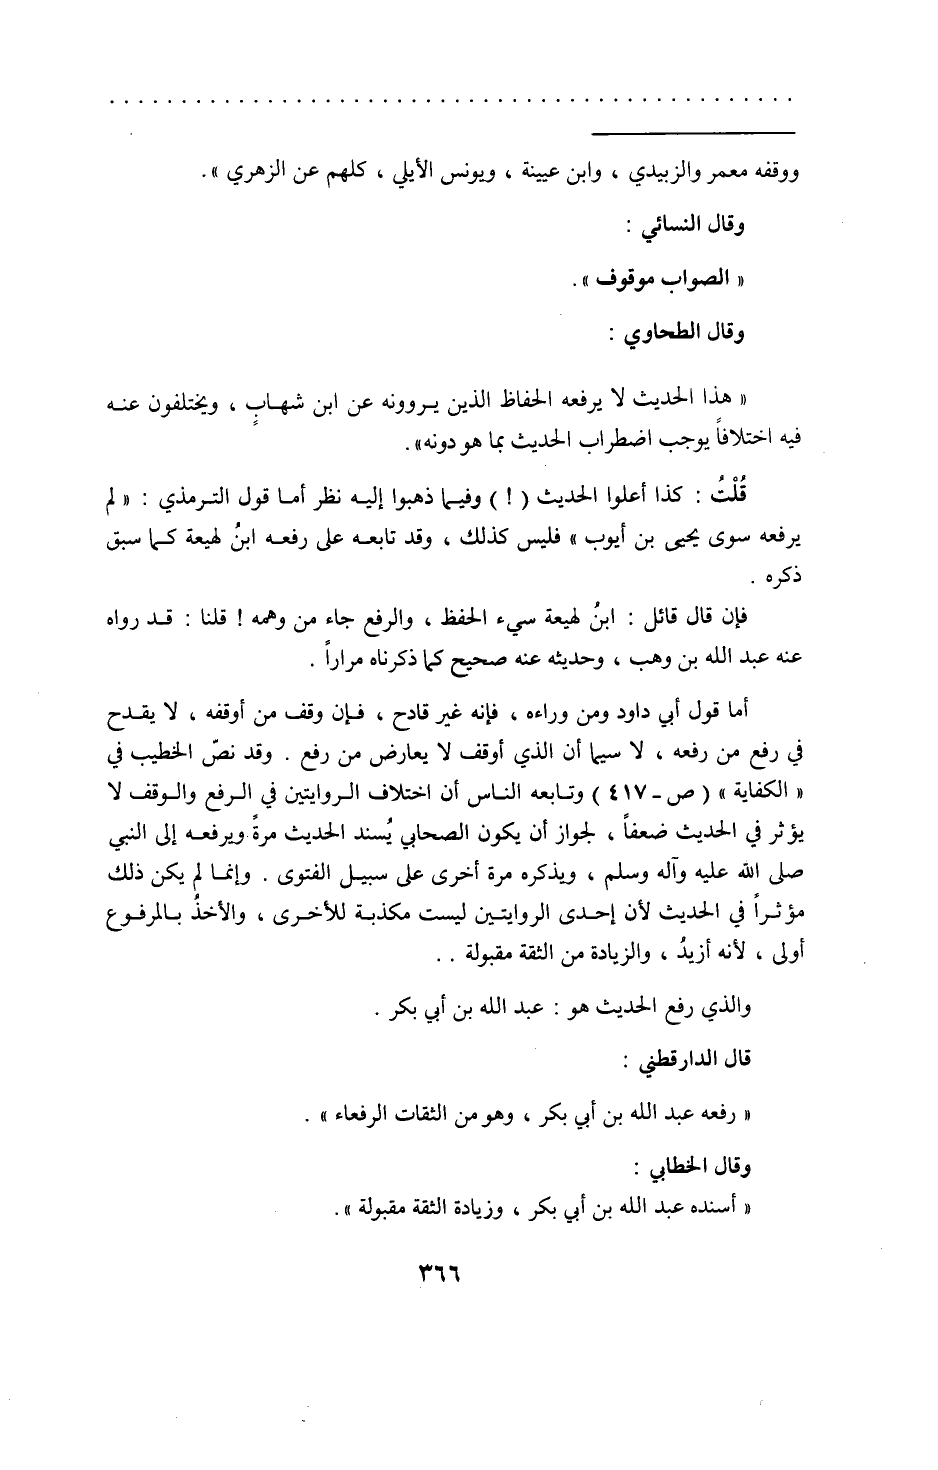 ووقفه معمر والزبيدي ، وابن عيينة ، ويونس الأيلي ، كلهم عن الزهري » .
وقال النسائي :
« الصواب موقوف » .
وقال الطحاوي :
« هذا الحديث لا يرفعه الحفاظ الذين يروونه عن ابن شهابٍ ، ويختلفون عنه
فيه اختلافاً يوجب اضطراب الحديث بما هو دونه» .
قُلْتُ : كذا أعلوا الحديث ( ! ) وفيما ذهبوا إليه نظر أما قول الترمذي : « لم
يرفعه سوى يحيى بن أيوب » فليس كذلك ، وقد تابعه على رفعه ابنُ لهيعة كما سبق
ذكره .
فإن قال قائل : ابنُ لهيعة سيء الحفظ ، والرفع جاء من وهمه ! قلنا : قد رواه
عنه عبد الله بن وهب ، وحديثه عنه صحيح كما ذكرناه مراراً .
أما قول أبي داود ومن وراءه ، فإنه غير قادح ، فإن وقف من أوقفه ، لا يقدح
في رفع من رفعه ، لا سيما أن الذي أوقف لا يعارض من رفع . وقد نصّ الخطيب في
« الكفاية » ( ص - ٤١٧ ) وتابعه الناس أن اختلاف الروايتين في الرفع والوقف لا
يؤثر في الحديث ضعفاً ، لجواز أن يكون الصحابي يُسند الحديث مرةً ويرفعه إلى النبي
صلى الله عليه وآله وسلم ، ويذكره مرة أخرى على سبيل الفتوى . وإنما لم يكن ذلك
مؤثراً في الحديث لأن إحدى الروايتين ليست مكذبة للأخرى ، والأخذُ بالمرفوع
أولى ، لأنه أزيدُ ، والزيادة من الثقة مقبولة . .
والذي رفع الحديث هو : عبد الله بن أبي بكر .
قال الدارقطني :
« رفعه عبد الله بن أبي بكر ، وهو من الثقات الرفعاء » .
وقال الخطابي :
« أسنده عبد الله بن أبي بكر ، وزيادة الثقة مقبولة » .
٣٦٦